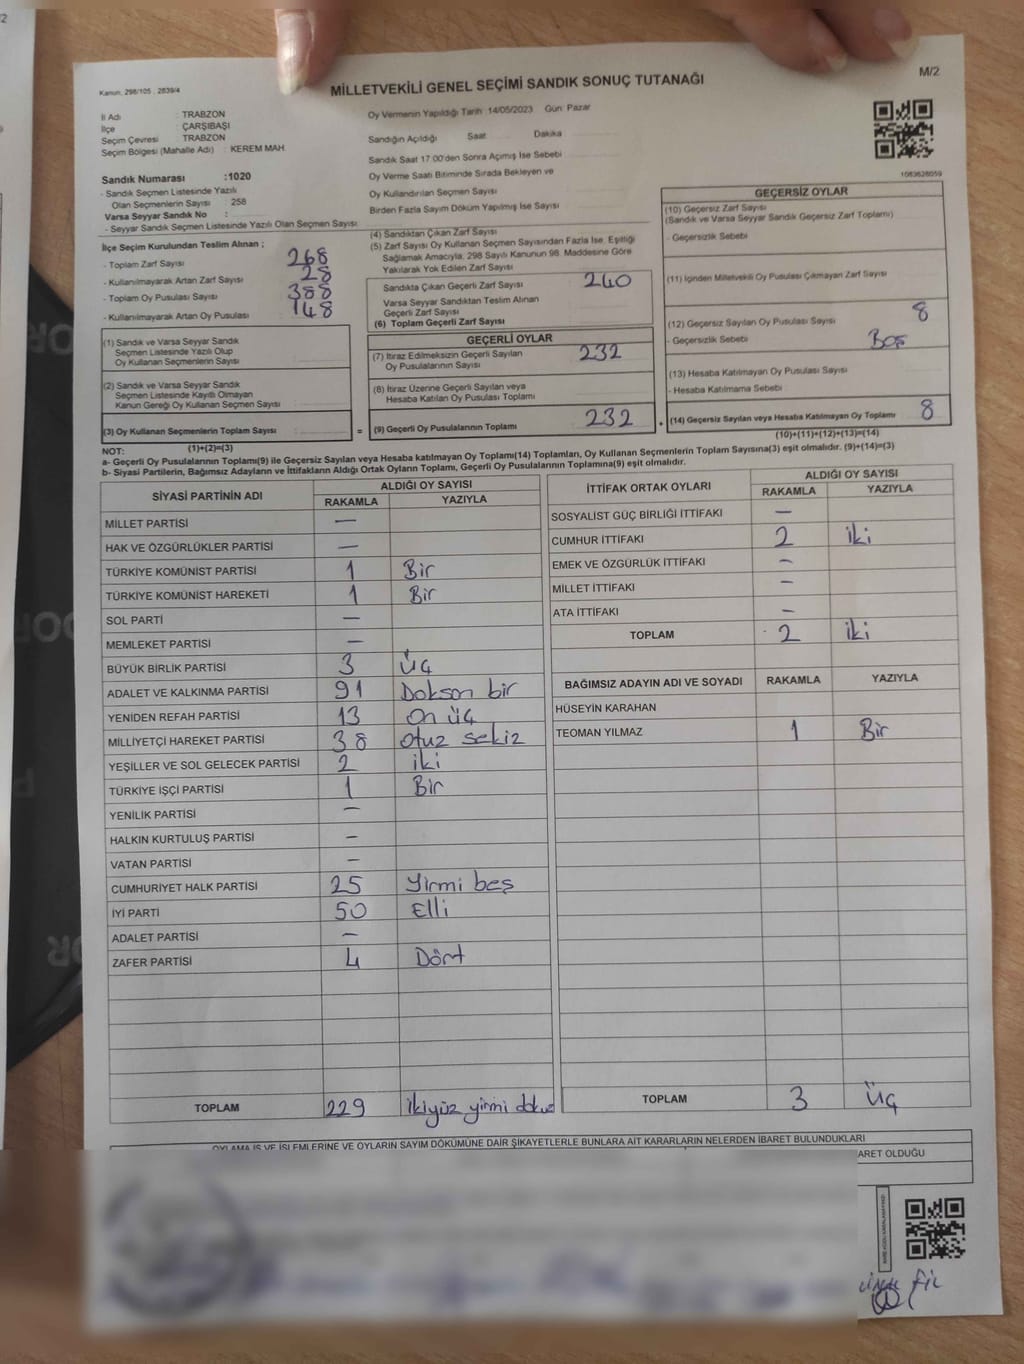 M/2
Kanun, 298/105 , 2839/4
MİLLETVEKİLİ GENEL SEÇİMİ SANDIK SONUÇ TUTANAĞI
İl Adı : TRABZON
İlçe : ÇARŞIBAŞI
Seçim Çevresi : TRABZON
Seçim Bölgesi (Mahalle Adı) : KEREM MAH.
Sandık Numarası :1020
- Sandık Seçmen Listesinde Yazılı
Olan Seçmenlerin Sayısı : 258
Varsa Seyyar Sandık No :
- Seyyar Sandık Seçmen Listesinde Yazılı Olan Seçmen Sayısı :
Oy Vermenin Yapıldığı Tarih :14/05/2023 Gün: Pazar
Sandığın Açıldığı Saat Dakika
Sandık Saat 17:00'den Sonra Açımış İse Sebebi
Oy Verme Saati Bitiminde Sırada Bekleyen ve
Oy Kullandırılan Seçmen Sayısı
Birden Fazla Sayım Döküm Yapılmış İse Sayısı
1083628059
İlçe Seçim Kurulundan Teslim Alınan ;
- Toplam Zarf Sayısı 268
- Kullanılmayarak Artan Zarf Sayısı 28
- Toplam Oy Pusulası Sayısı 388
- Kullanılmayarak Artan Oy Pusulası 148
(1) Sandık ve Varsa Seyyar Sandık
Seçmen Listesinde Yazılı Olup
Oy Kullanan Seçmenlerin Sayısı
(2) Sandık ve Varsa Seyyar Sandık
Seçmen Listesinde Kayıtlı Olmayan
Kanun Gereği Oy Kullanan Seçmen Sayısı
(3) Oy Kullanan Seçmenlerin Toplam Sayısı
(1)+(2)=(3)
(4) Sandıktan Çıkan Zarf Sayısı
(5) Zarf Sayısı Oy Kullanan Seçmen Sayısından Fazla İse, Eşitliği
Sağlamak Amacıyla, 298 Sayılı Kanunun 98. Maddesine Göre
Yakılarak Yok Edilen Zarf Sayısı
Sandıkta Çıkan Geçerli Zarf Sayısı 240
Varsa Seyyar Sandıktan Teslim Alınan
Geçerli Zarf Sayısı
(6) Toplam Geçerli Zarf Sayısı
GEÇERLİ OYLAR
(7) İtiraz Edilmeksizin Geçerli Sayılan 232
Oy Pusulalarının Sayısı
(8) İtiraz Üzerine Geçerli Sayılan veya
Hesaba Katılan Oy Pusulası Toplamı
= (9) Geçerli Oy Pusulalarının Toplamı 232
GEÇERSİZ OYLAR
(10) Geçersiz Zarf Sayısı
(Sandık ve Varsa Seyyar Sandık Geçersiz Zarf Toplamı)
- Geçersizlik Sebebi
(11) İçinden Milletvekili Oy Pusulası Çıkmayan Zarf Sayısı
(12) Geçersiz Sayılan Oy Pusulası Sayısı 8
- Geçersizlik Sebebi Boş
(13) Hesaba Katılmayan Oy Pusulası Sayısı
- Hesaba Katılmama Sebebi
+ (14) Geçersiz Sayılan veya Hesaba Katılmayan Oy Toplamı 8
(10)+(11)+(12)+(13)=(14)
NOT:
a- Geçerli Oy Pusulaları Toplamı(9) ile Geçersiz Sayılan veya Hesaba katılmayan Oy Toplamı(14) Toplamları, Oy Kullanan Seçmenlerin Toplam Sayısına(3) eşit olmalıdır. (9)+(14)=(3)
b- Siyasi Partilerin, Bağımsız Adayların ve İttifakların Aldığı Ortak Oyların Toplamı, Geçerli Oy Pusulalarının Toplamına(9) eşit olmalıdır.
SİYASİ PARTİNİN ADI ALDIĞI OY SAYISI
RAKAMLA YAZIYLA
MİLLET PARTİSİ —
HAK VE ÖZGÜRLÜKLER PARTİSİ —
TÜRKİYE KOMÜNİST PARTİSİ 1 Bir
TÜRKİYE KOMÜNİST HAREKETİ 1 Bir
SOL PARTİ —
MEMLEKET PARTİSİ —
BÜYÜK BİRLİK PARTİSİ 3 Üç
ADALET VE KALKINMA PARTİSİ 91 Doksan bir
YENİDEN REFAH PARTİSİ 13 On üç
MİLLİYETÇİ HAREKET PARTİSİ 38 otuz sekiz
YEŞİLLER VE SOL GELECEK PARTİSİ 2 iki
TÜRKİYE İŞÇİ PARTİSİ 1 Bir
YENİLİK PARTİSİ —
HALKIN KURTULUŞ PARTİSİ —
VATAN PARTİSİ —
CUMHURİYET HALK PARTİSİ 25 Yirmi beş
İYİ PARTİ 50 Elli
ADALET PARTİSİ —
ZAFER PARTİSİ 4 Dört
TOPLAM 229 ikiyüz yirmi dokuz
İTTİFAK ORTAK OYLARI ALDIĞI OY SAYISI
RAKAMLA YAZIYLA
SOSYALİST GÜÇ BİRLİĞİ İTTİFAKI —
CUMHUR İTTİFAKI 2 iki
EMEK VE ÖZGÜRLÜK İTTİFAKI —
MİLLET İTTİFAKI —
ATA İTTİFAKI —
TOPLAM 2 iki
BAĞIMSIZ ADAYIN ADI VE SOYADI RAKAMLA YAZIYLA
HÜSEYİN KARAHAN
TEOMAN YILMAZ 1 Bir
TOPLAM 3 Üç
OYLAMA İŞ VE İŞLEMLERİNE VE OYLARIN SAYIM DÖKÜMÜNE DAİR ŞİKAYETLERLE BUNLARA AİT KARARLARIN NELERDEN İBARET BULUNDUKLARI
ARET OLDUĞU